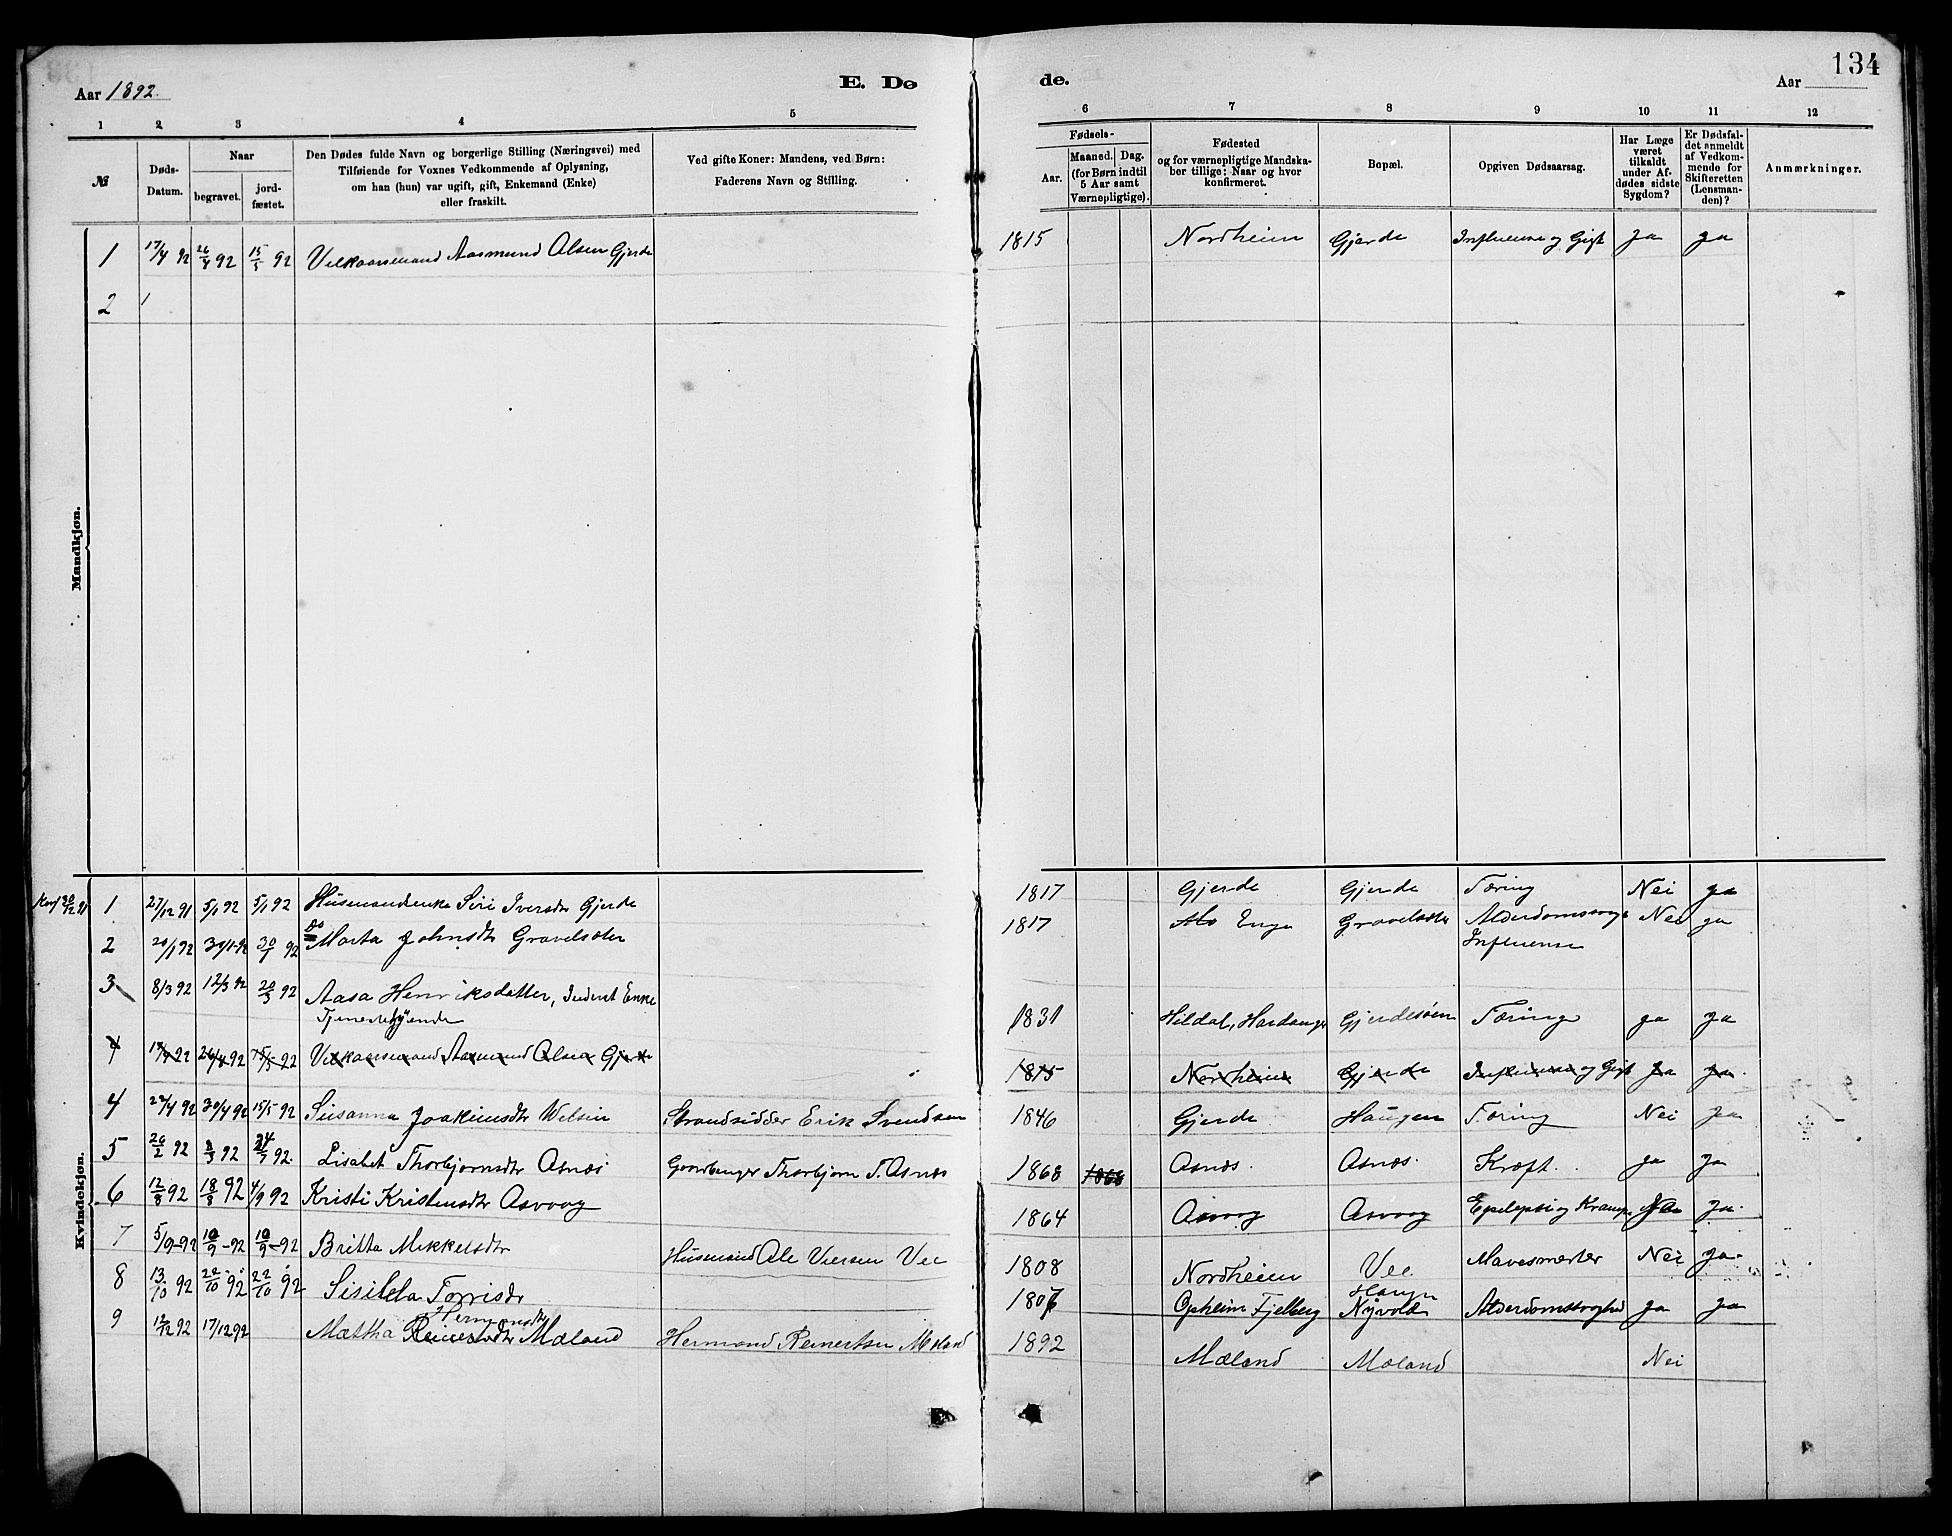 134
Aar 1892. E. Dø de. Aar
1 2 3 4 5 6 7 8 9 10 11 12
№
Døds-
Datum.
Naar
begravet.
jord-
fæstet.
Den Dødes fulde Navn og borgerlige Stilling (Næringsvei) med
Tilføiende for Voxnes Vedkommende af Oplysning,
om han (hun) var ugift, gift, Enkemand (Enke)
eller fraskilt.
Ved gifte Koner: Mandens, ved Børn:
Faderens Navn og Stilling.
Fødsels-
Aar.
Maaned. Dag.
(for Børn indtil
5 Aar samt
Værnepligtige).
Fødested
og for værnepligtige Mandska-
ber tillige: Naar og hvor
konfirmeret.
Bopæl.
Opgiven Dødsaarsag.
Har Læge
været
tilkaldt
under Af-
dødes sidste
Sygdom?
Er Dødsfal-
det anmeldt
af Vedkom-
mende for
Skifteretten
(Lensman-
den)?
Anmærkninger.
Mandkjøn.
1 17/4 92 26/4 92 15/5 92 Vilkaarsmand Aasmund Olsen Gjerde 1815 Nordheim Gjerde Influensa og Gigt Ja ja
2
Kvindekjøn.
1 27/12 91 5/1 92 5/1 92 Husmandsenke Siri Iversdtr Gjerde 1817 Gjerde Gjerde Tæring Nei ja
Do
2 20/1 92 30/1-92 30/1 92 Marta Johnsdtr Gravelsæter 1817 Enge Gravelsæter Alderdomssvage Nei ja
Influensa
3 8/3 92 12/3 92 20/3 92 Aasa Henriksdatter, Inderst Enke
Tjenestepiende 1831 Hildal, Hardanger Gjerdesøen Tæring ja ja
4 17/4 92 26/4 92 15/5-92 Vilkaarsmand Aasmund Olsen Gjerde 1815 Nordheim Gjerde Influensa og Gigt Ja ja.
4 22/4 92 30/4 92 15/5 92 Susanna Joakimsdtr Welsin Strandsidder Erik Svendsen 1846 Gjerde Haugen Tæring Nei Ja
5 26/2 92 3/3 92 24/7 92. Lisabet Thorbjørnsdtr Asnæs Gaardbruger Thorbjørn T. Asnæs 1868 1868 Asnæs. Asnæs. Kræft. ja ja
6 12/8 92 18/8 92 4/9 92 Kristi Kristensdtr Asvaag 1864 Asvaag Asvaag Epilepsi og Krampe Ja.
7 5/9-92 10/9-92 10/9-92 Britta Mikkelsdtr Husmand Ole Viersen Vee 1808 Nordheim Vee Mavesmerter Nei Ja.
8 13/10 92 22/10 92 22/10 92 Sisilda Torrisdr Opheim Fjelberg Haugen
Nyvold Alderdomssvaghed Ja Ja
Hermansdtr
9 12/12 92 17/12 92 Mattha Reinertsdtr Mæland Hermand Reinertsen Mæland 1892 Mæland Mæland Nei